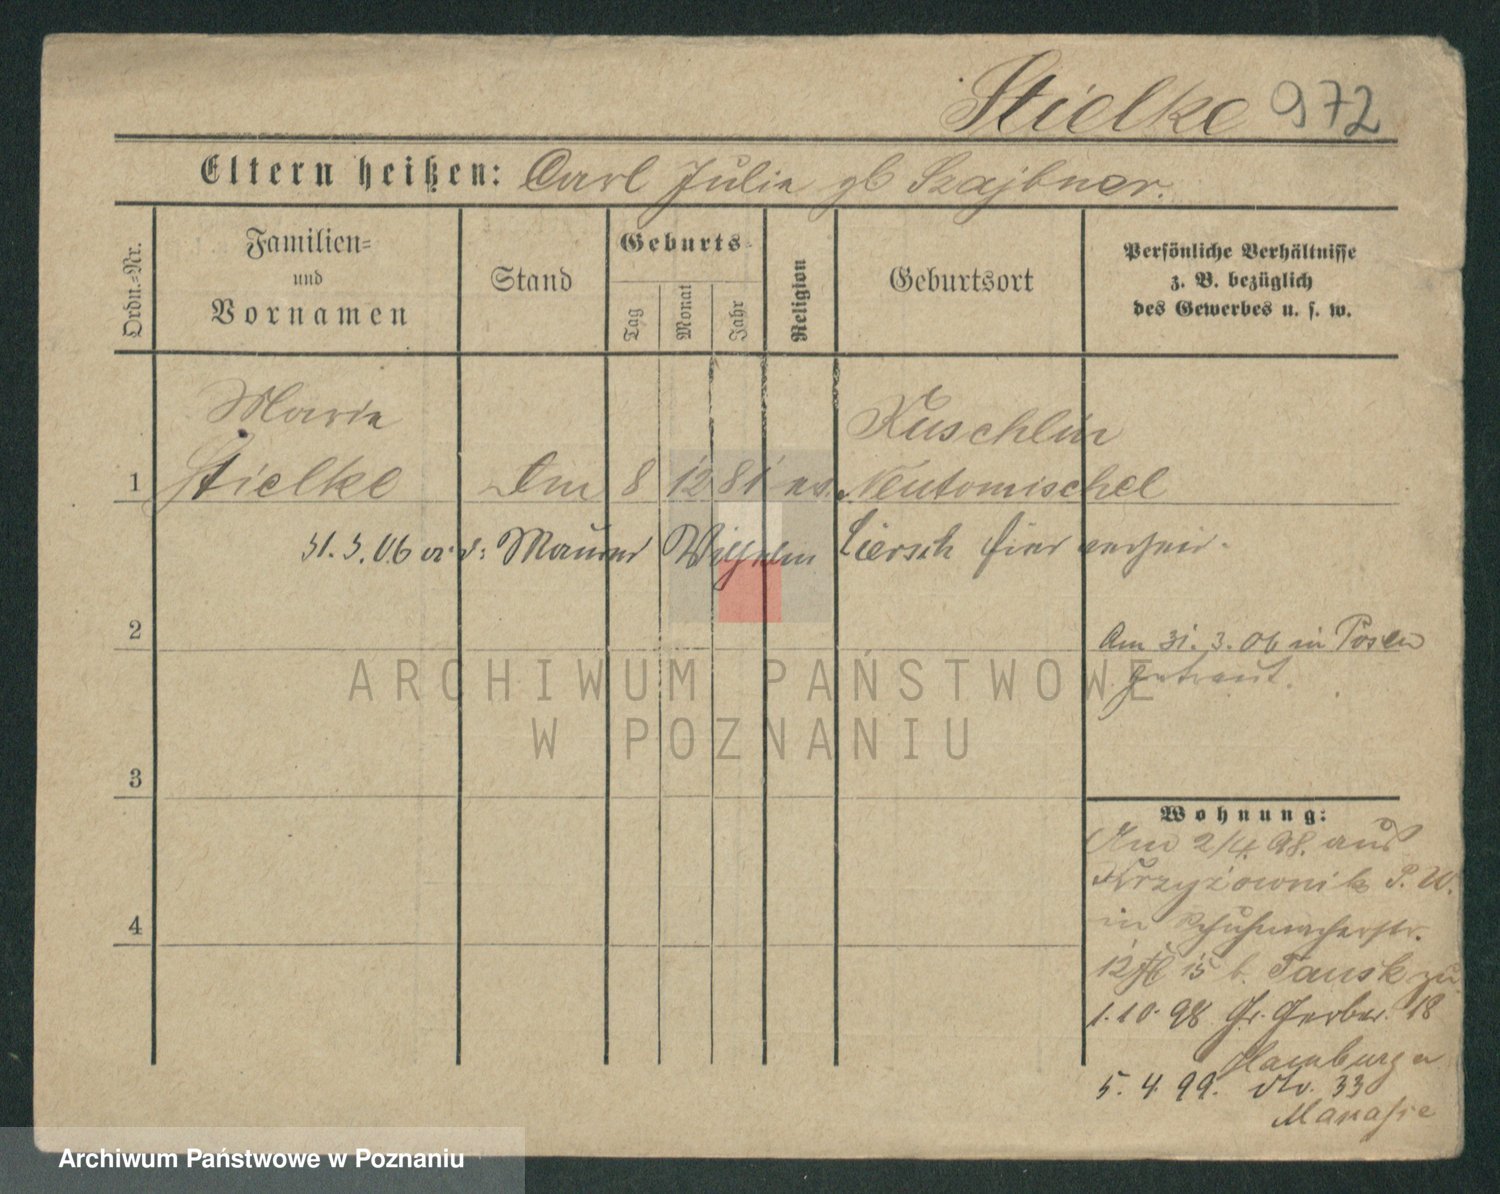 Stielke 972
Eltern heißen: Carl Julia gb Szajbner.
Ordn.=Nr.
Familien=
und
Vornamen
Stand
Geburts=
Tag
Monat
Jahr
Religion
Geburtsort
Persönliche Verhältnisse
z. B. bezüglich
des Gewerbes u. s. w.
Marie
Kuschlin
1 Stielke 8 12 81 ev. Neutomischel
31. 3. 06 Maurer Wilhelm Liersch hier
2
Am 31. 3. 06 in Posen
getraut.
ARCHIWUM PAŃSTWOWE
W POZNANIU
3
Wohnung:
2/4. 98. aus
Krzyżownik P. W.
4
in Schuhmacherstr.
15 b. Tausk zu
1. 10. 98 Gr. Gerber. 18
Hamburg
5. 4. 99. 33
Manasse
Archiwum Państwowe w Poznaniu